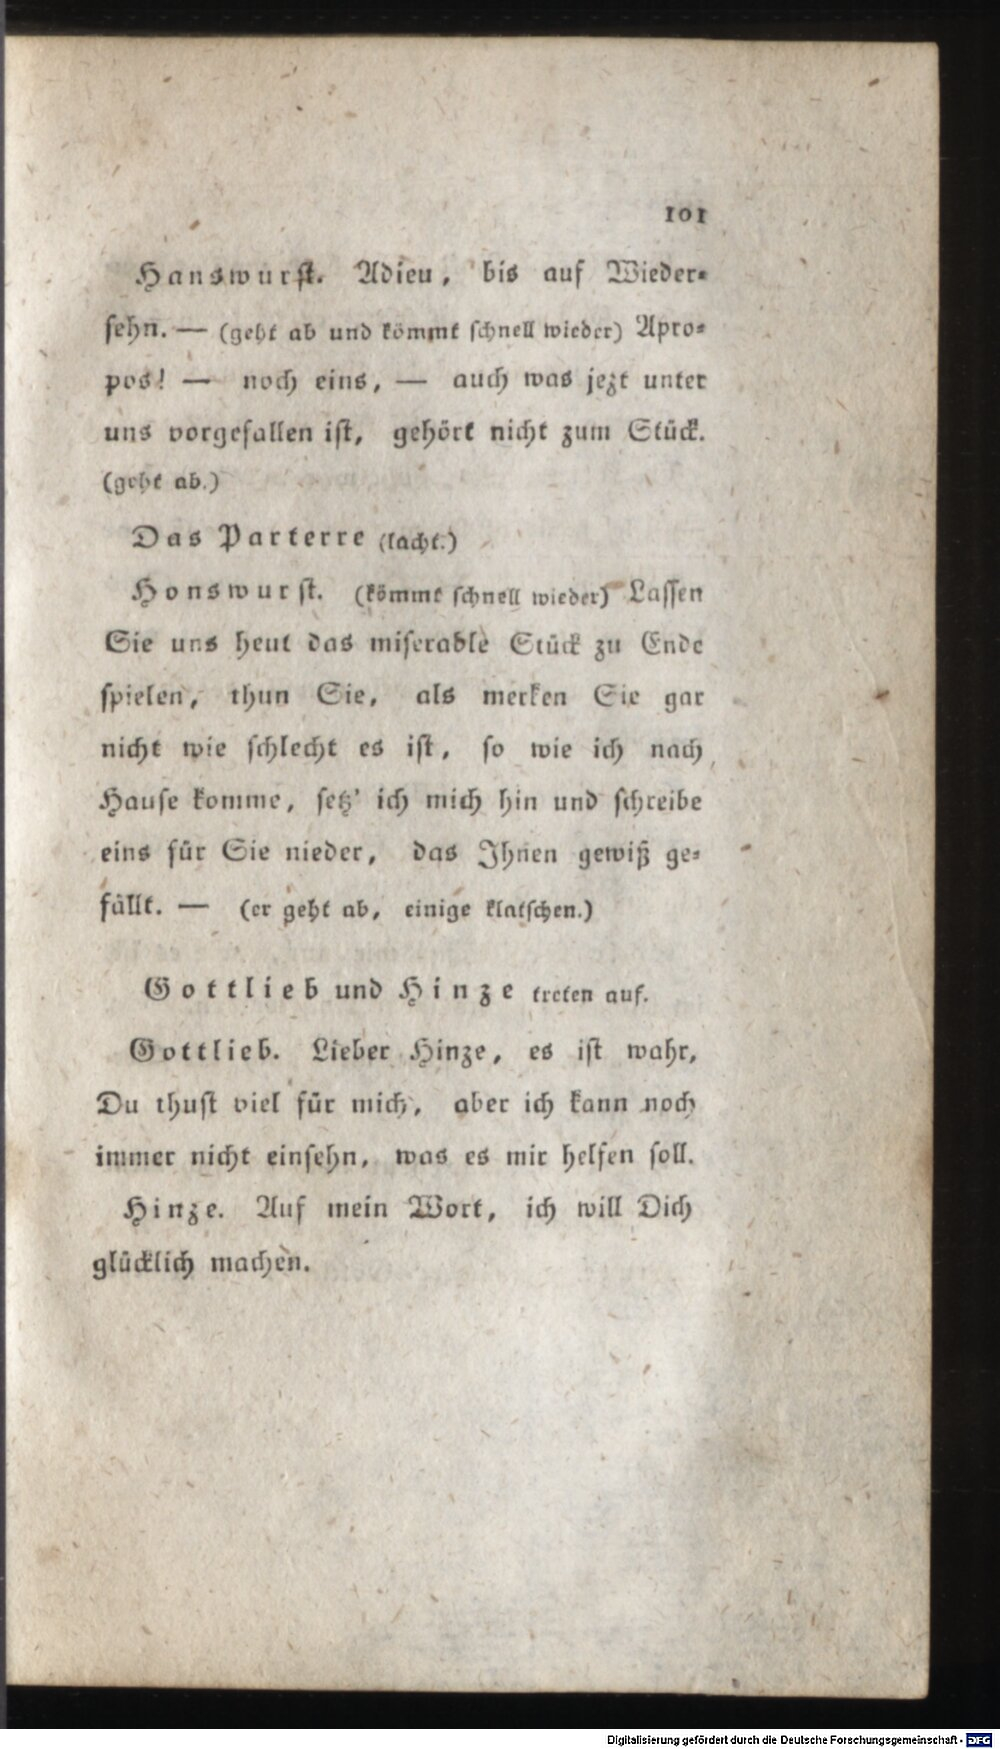 101
Hanswurst. Adieu, bis auf Wieder-
sehn. — (geht ab und kömmt schnell wieder) Apro-
pos! — noch eins, — auch was jezt unter
uns vorgefallen ist, gehört nicht zum Stück.
(geht ab.)
Das Parterre (lacht.)
Honswurst. (kömmt schnell wieder) Lassen
Sie uns heut das miserable Stück zu Ende
spielen, thun Sie, als merken Sie gar
nicht wie schlecht es ist, so wie ich nach
Hause komme, setz' ich mich hin und schreibe
eins für Sie nieder, das Ihnen gewiß ge-
fällt. — (er geht ab, einige klatschen.)
Gottlieb und Hinze treten auf.
Gottlieb. Lieber Hinze, es ist wahr,
Du thust viel für mich, aber ich kann noch
immer nicht einsehn, was es mir helfen soll.
Hinze. Auf mein Wort, ich will Dich
glücklich machen.
Digitalisierung gefördert durch die Deutsche Forschungsgemeinschaft - DFG